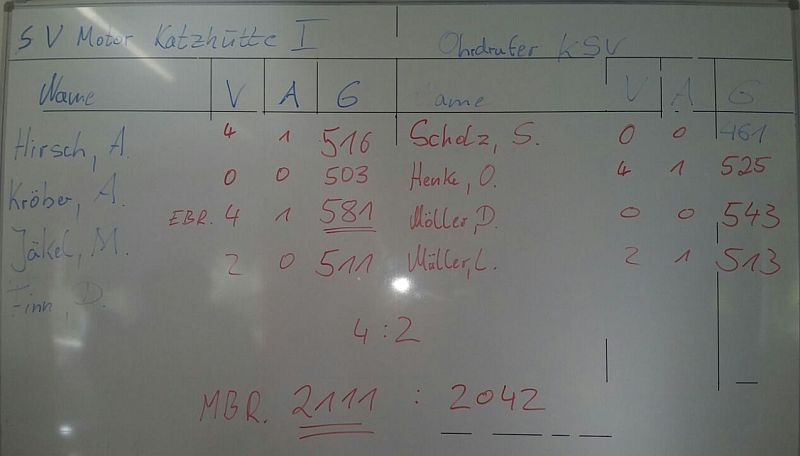 SV Motor Katzhütte I Ohrdrufer KSV
Name V A G Name V A G
Hirsch, A. 4 1 516 Scholz, S. 0 0 461
Kröber, A. 0 0 503 Henke, O. 4 1 525
Jäkel, M. EBR. 4 1 581 Möller, D. 0 0 543
Finn, D. 2 0 511 Müller, L. 2 1 513
4 : 2
MBR. 2111 : 2042